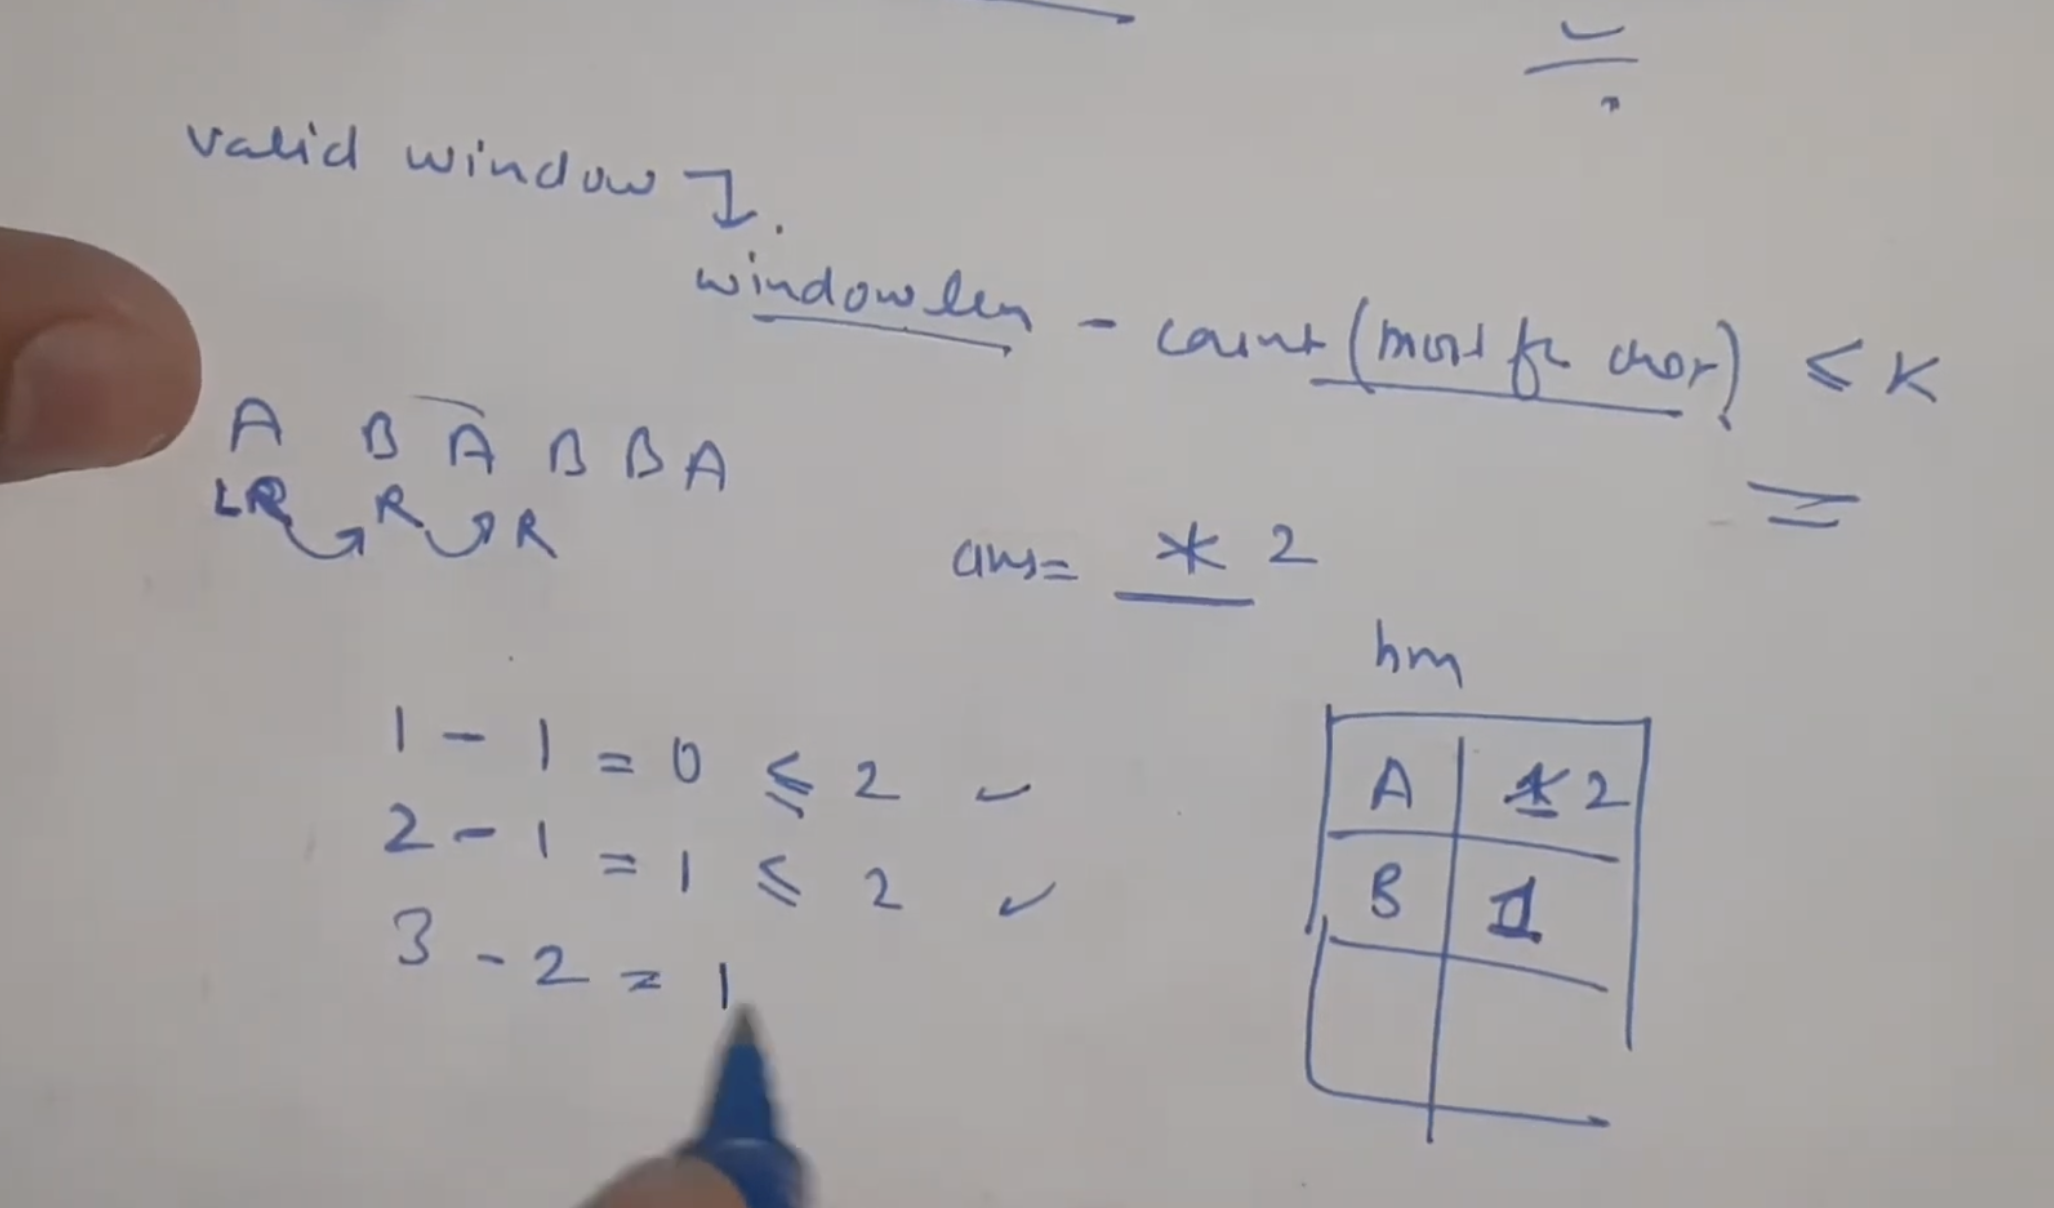 valid window ↴.
windowlen - count (most fr char) ≤ K
A B A B B A
LR R R
ans= 1 2
hm
1 - 1 = 0 ≤ 2 ✓
2 - 1 = 1 ≤ 2 ✓
3 - 2 = 1
A | 1 2
B | 1